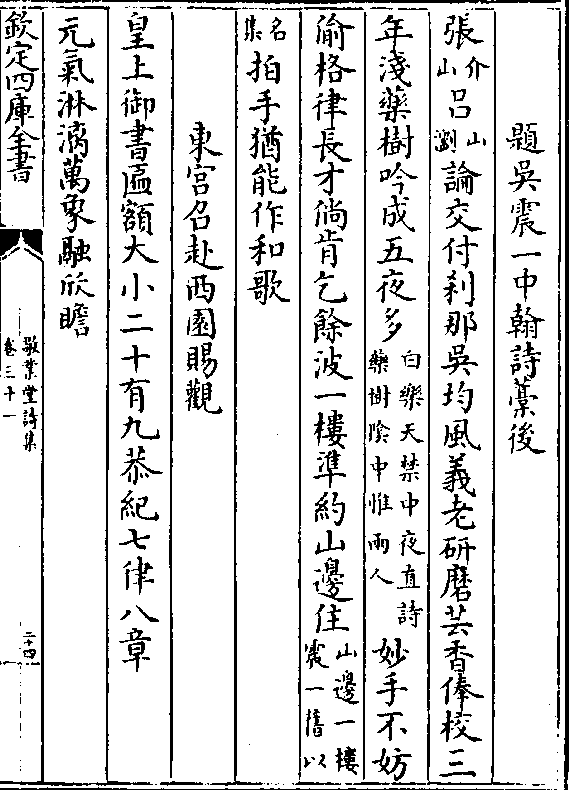 題吳震一中翰詩藁後
張介山吕山瀏論交付刹那吳均風義老研磨芸香俸校三
年淺藥樹吟成五夜多白樂天禁中夜直詩藥樹隂中惟兩人妙手不妨
偷格律長才倘肯乞餘波一樓凖約山邊住山邊一樓震一舊以
名集拍手猶能作和歌
東宫召赴西園賜觀
皇上御書匾額大小二十有九恭紀七律八章
元氣淋漓萬象融欣瞻
欽定四庫全書
敬業堂詩集
卷三十一
二十四